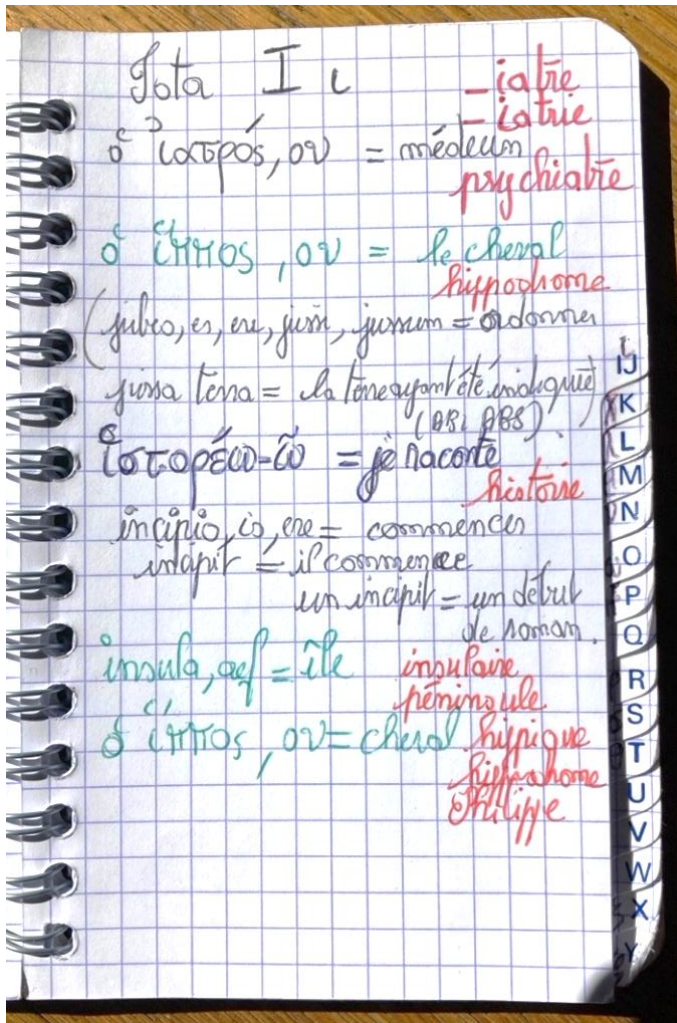 Iota I ι
-iatre
-iatrie
ὁ ἰατρός, ου = médecin
psychiatre
ὁ ἵππος, ου = le cheval
hippodrome
(jubeo, es, ere, jussi, jussum = ordonner
jussa terra = la terre ayant été indiquée)
(ABL ABS).
ἱστορέω-ῶ = je raconte
histoire
incipio, is, ere = commencer
incipit = il commence
un incipit = un début
de roman.
insula, ae f = île insulaire
péninsule
ὁ ἵππος, ου = cheval hippique
hippodrome
Philippe
IJ
K
L
M
N
O
P
Q
R
S
T
U
V
W
X
Y